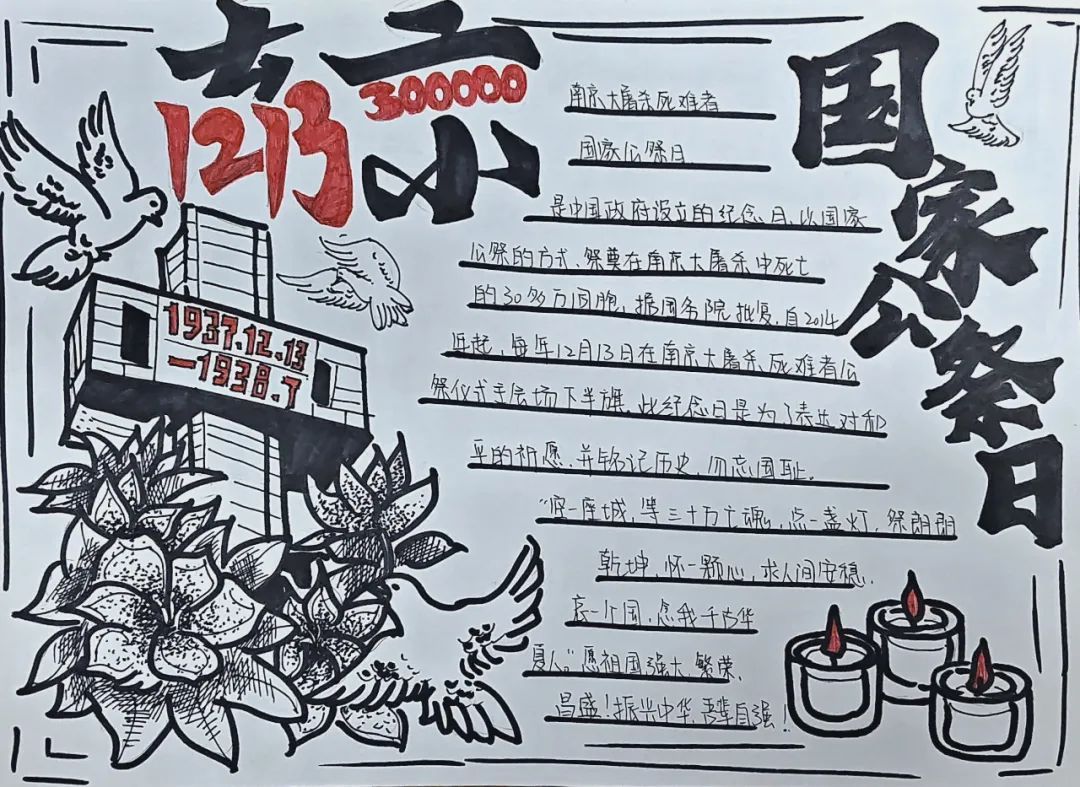 南京
1213
300000
国家公祭日
南京大屠杀死难者
国家公祭日
是中国政府设立的纪念日,以国家
公祭的方式、祭奠在南京大屠杀中死亡
的30多万同胞,据国务院批复,自2014
年起,每年12月13日在南京大屠杀死难者公
祭仪式主会场下半旗,此纪念日是为了表达对和
平的祈愿,并铭记历史,勿忘国耻。
“一座城,等三十万亡魂,点一盏灯,祭朗朗
乾坤,怀一颗心,求人间安稳,
一个国,念我千古华
夏人。”愿祖国强大 繁荣,
昌盛!振兴中华,吾辈自强!
1937.12.13
-1938.1